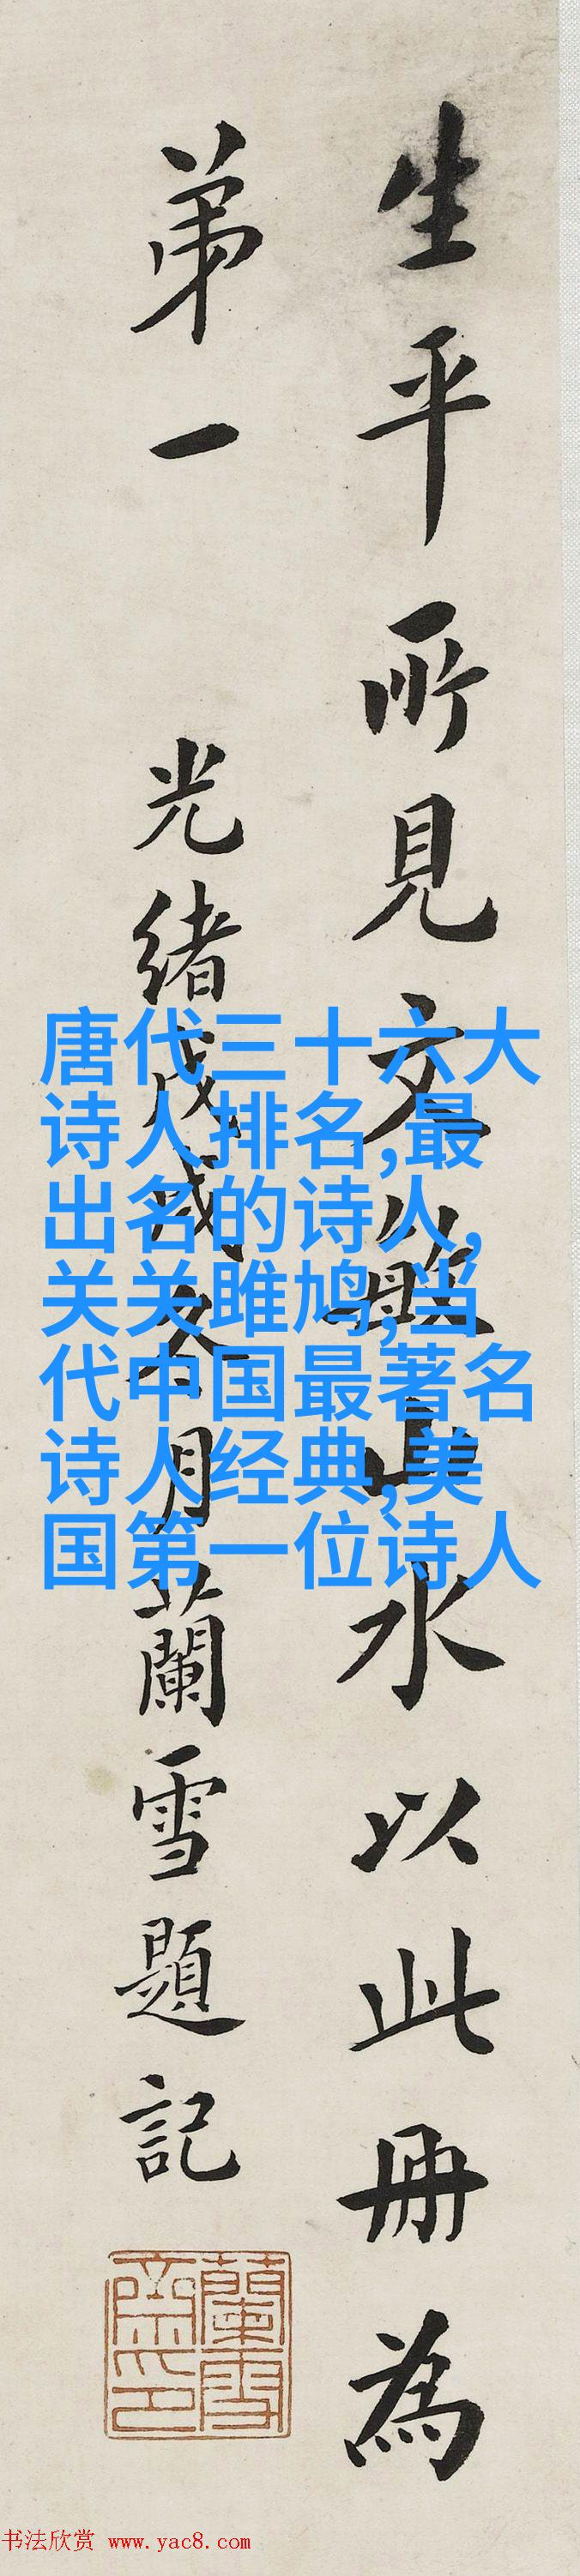 生平所見文敏山水以此冊為
弟一 光緒戊戌冬月蘭雪題記
蘭雪
齋印
唐代三十六大
诗人排名,最
出名的诗人,
关关雎鸠,当
代中国最著名
诗人经典,美
国第一位诗人
书法欣赏 www.yac8.com